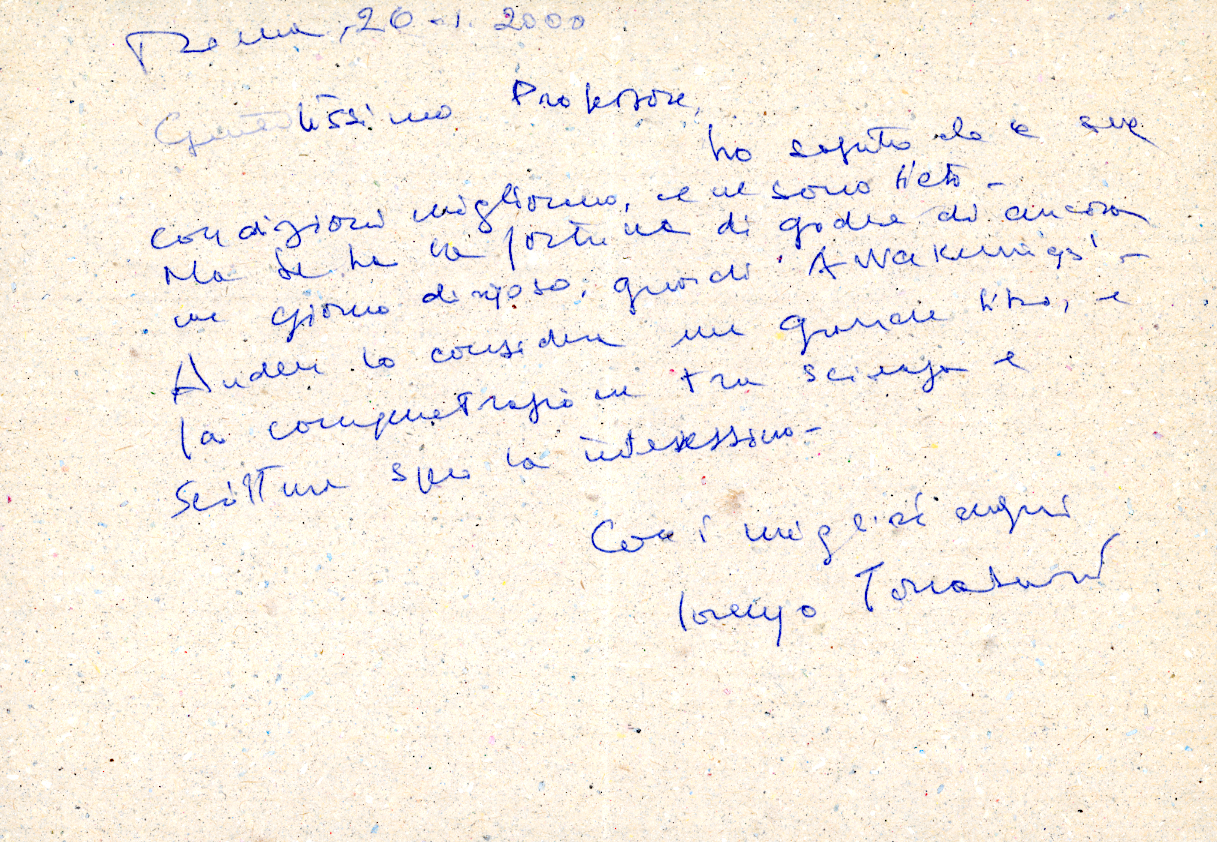 Roma, 20-1-2000
Gentilissimo Professore,
ho saputo che le sue
condizioni migliorano, e ne sono lieto -
Ma se ha la fortuna di godere di ancora
un giorno di riposo, guardi 'Awakenings' -
Auden lo considera un grande libro, e
la compenetrazione tra scienza e
scrittura
Con i migliori auguri
Lorenzo